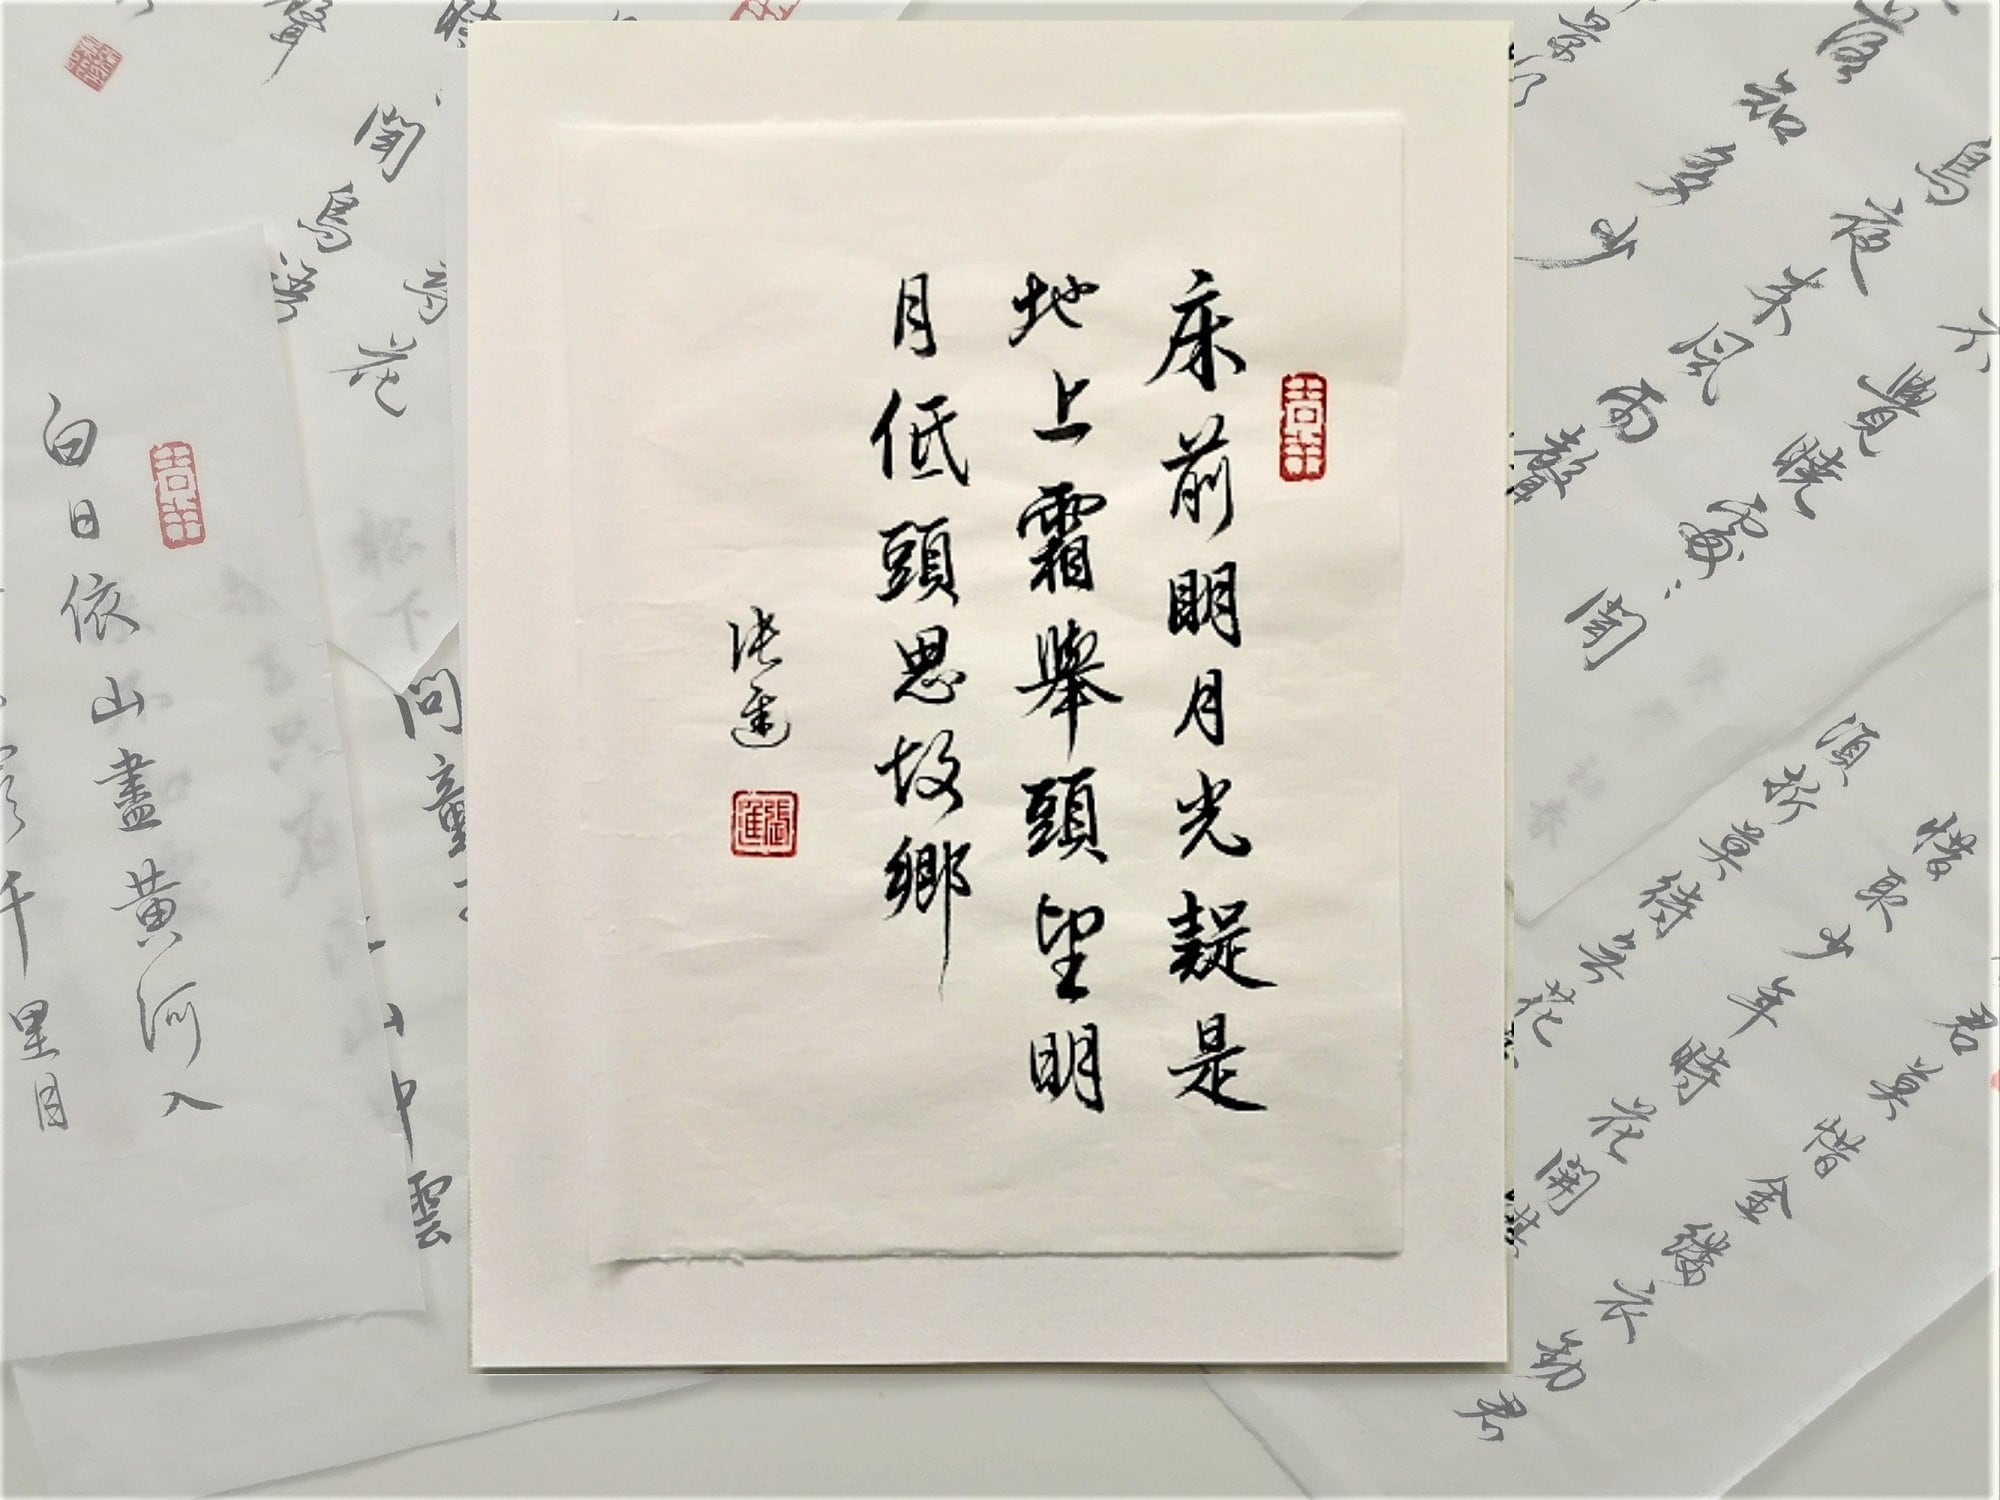 床前明月光疑是
地上霜舉頭望明
月低頭思故鄉
張進
張進
白日依山盡黃河入
千里目
聞
鳥
花
問童
中雲
落知多少
鳥夜來風雨聲
覺曉處聞
須折莫待無花
惜取少年時花開
君莫惜金縷衣勸君